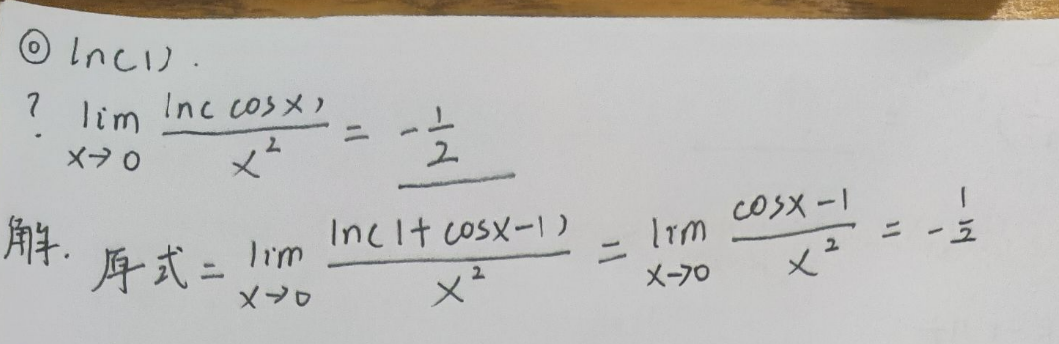 ◎ ln(1).
? lim x→0 ln(cosx)/x² = -1/2
解. 原式 = lim x→0 ln(1+cosx-1)/x² = lim x→0 cosx-1/x² = -1/2